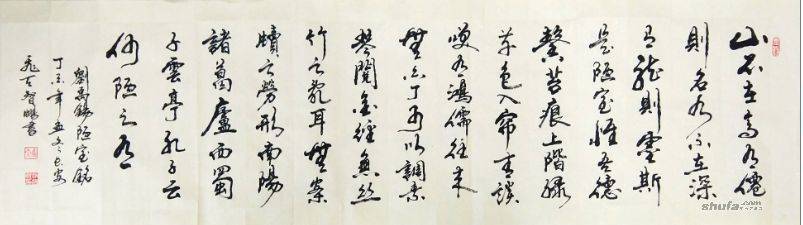 山不在高有僊
則名水不在深
有龍則靈斯
是陋室惟吾德
馨苔痕上階綠
草色入帘青談
笑有鴻儒往來
無白丁可以調素
琴閱金經無絲
竹之亂耳無案
牘之勞形南陽
諸葛廬西蜀
子雲亭孔子云
何陋之有
劉禹錫陋室銘
丁亥年孟冬長安
智鵬書
shufa.com